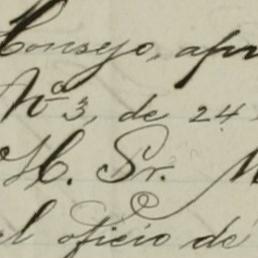 Consejo, apr
Nº 3, de 24
H. Sr. M
el oficio de